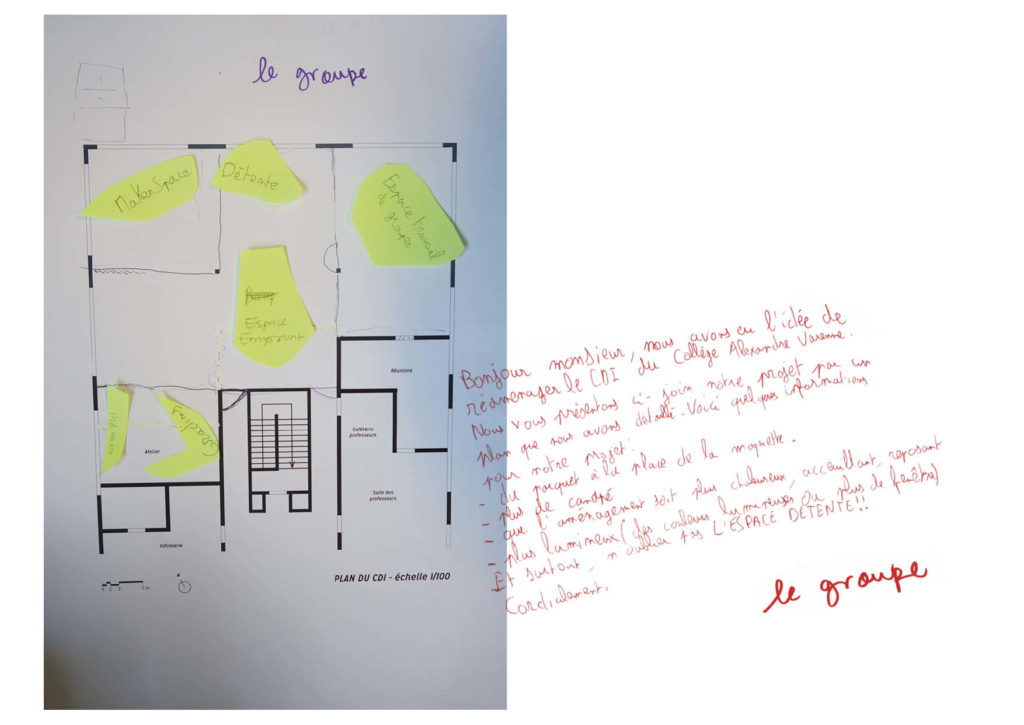 le groupe
MakerSpace
Détente
Espace travail
de groupes
Espace
Emprunt
Réunions
Atelier
Cafétéria
professeurs
Salle des
professeurs
Infirmerie
0 1 2 5 m
N
PLAN DU CDI - échelle 1/100
Bonjour monsieur, nous avons eu l'idée de
réaménager le CDI du Collège Alexandre Varenne.
Nous vous présentons ci-join notre projet par un
plan que nous avons détaillé. Voici quelques informations
pour notre projet:
- du parquet à la place de la moquette.
- plus de canapé
- que l'aménagement soit plus chaleureux, acceuillant, reposant
- plus lumineux (des couleurs lumineuses ou plus de fenêtre)
Et surtout, n'oublier pas L'ESPACE DÉTENTE!!
Cordialement.
le groupe